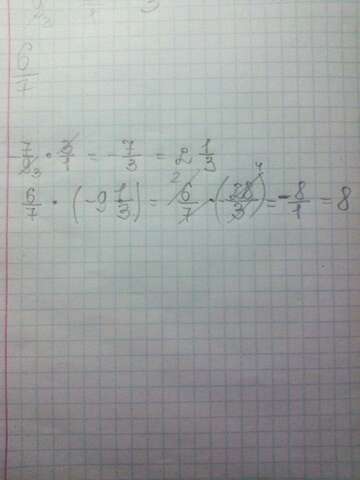 6/7
-7/9 3 · 3/1 = -7/3 = 2 1/3
6/7 · (-9 1/3) = 2 6/7 · (-28/3) 4 = -8/1 = 8